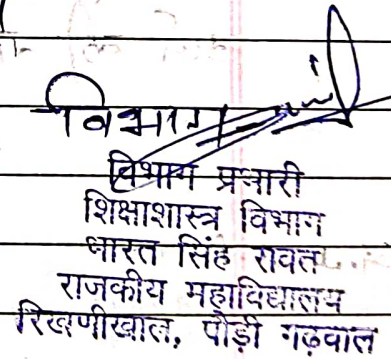 विभाग
विभाग प्रभारी
शिक्षाशास्त्र विभाग
भारत सिंह रावत
राजकीय महाविद्यालय
रिखणीखाल, पौड़ी गढ़वाल